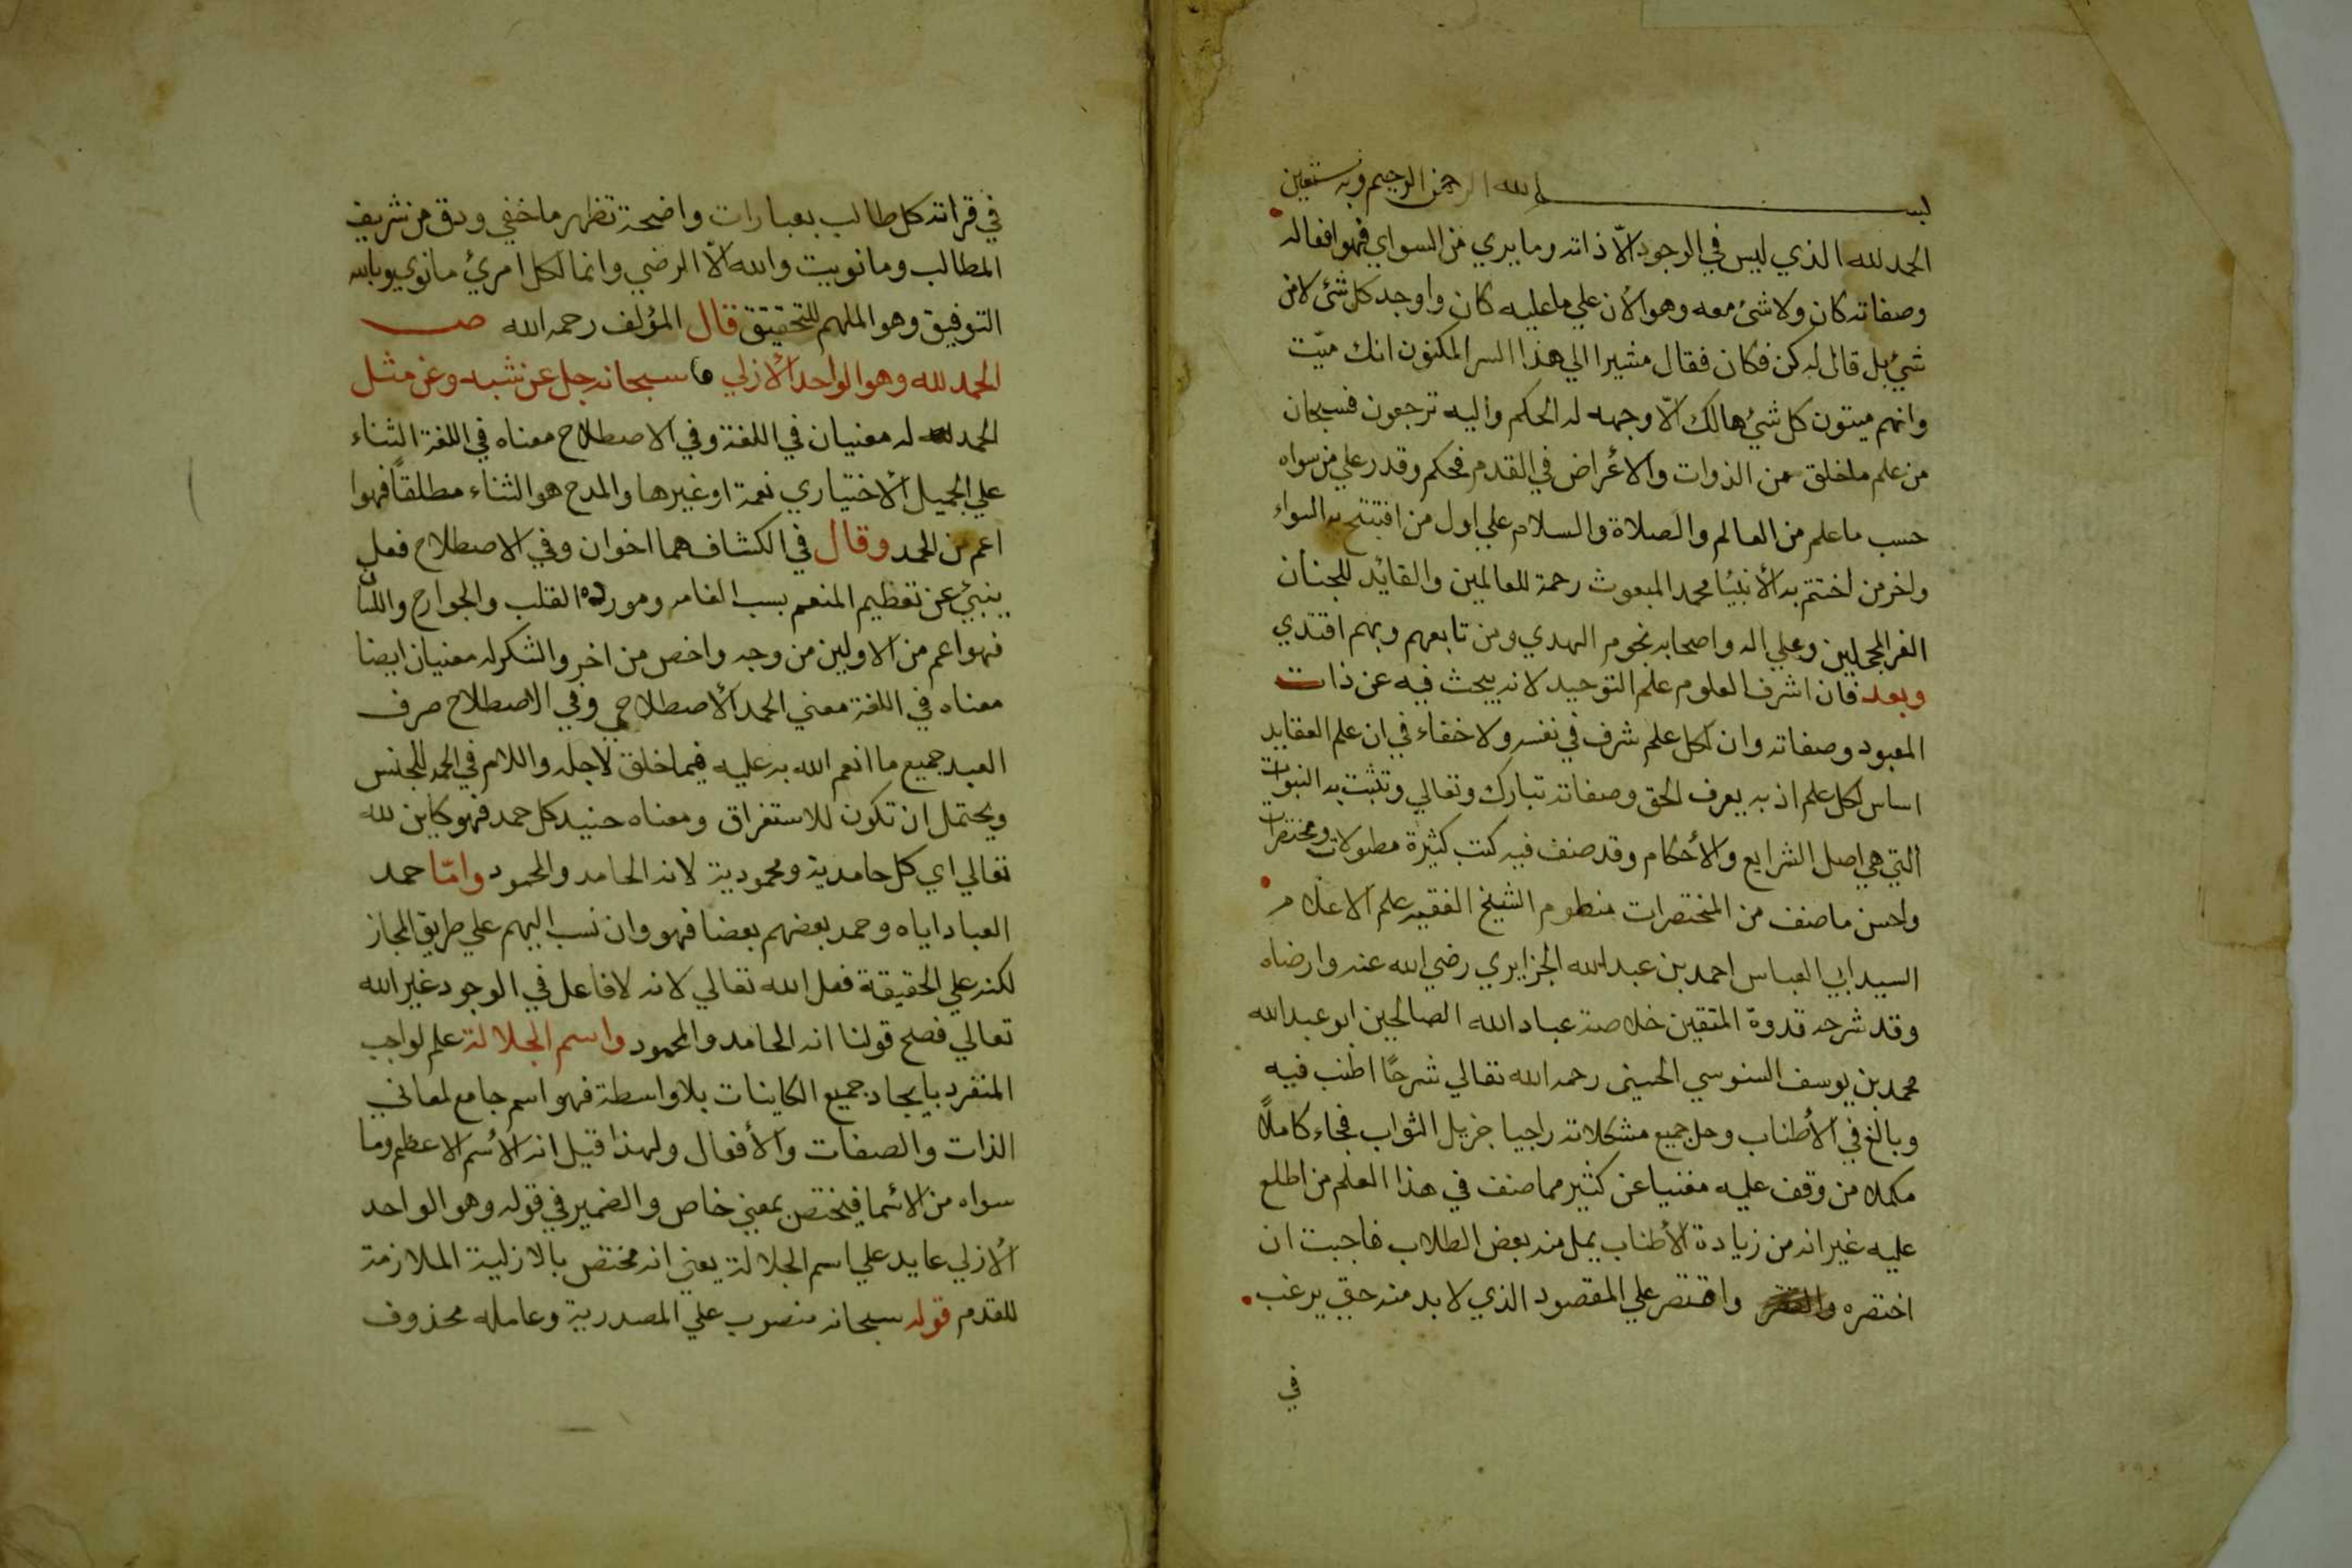 بسم الله الرحمن الرحيم وبه نستعين
الحمد لله الذي ليس في الوجود الّا ذاته وما يري من السواي فهوا فعاله
وصفاته كان ولا شئ معه وهو الأن علي ما عليه كان واوجد كل شئ لا من
شيء بل قال له كن فكان فقال مشيرا الي هذا السر المكنون انك ميّت
وانهم ميتون كل شيء هالك الّا وجهه له الحكم واليه ترجعون فسبحان
من علم ما خلق من الذوات والأعراض في القدم فحكم وقدر علي من سواه
حسب ما علم من العالم والصلاة والسلام علي اول من افتتح به السواء
واخر من اختتم به الأنبيا محمد المبعوث رحمة للعالمين والقائد للجنان
الغر المحجلين وعلي اله واصحابه نجوم الهدي ومن تابعهم وبهم اقتدي
وبعد فان اشرف العلوم علم التوحيد لانه يبحث فيه عن ذات
المعبود وصفاته وان لكل علم شرف في نفسه ولا خفاء في ان علم العقايد
اساس لكل علم اذ به يعرف الحق وصفاته تبارك وتعالي وتثبت به النبوات
التي هي اصل الشرايع والأحكام وقد صنف فيه كتب كثيرة مطولات ومختصرات
واحسن ما صنف من المختصرات منظوم الشيخ الفقيه علم الاعلام
السيد ابي العباس احمد بن عبد الله الجزايري رضي الله عنه وارضاه
وقد شرحه قدوة المتقين خلاصة عباد الله الصالحين ابو عبد الله
محمد بن يوسف السنوسي الحسني رحمه الله تعالي شرحًا اطنب فيه
وبالغ في الأطناب وحل جميع مشكلاته راجيا جزيل الثواب فجاء كاملًا
مكملا من وقف عليه مغنيا عن كثير مما صنف في هذا العلم من اطلع
عليه غير انه من زيادة الأطناب يمل منه بعض الطلاب فاجبت ان
اختصره واقتصر علي المقصود الذي لا بد منه حتي يرغب
في
في قراته كل طالب بعبارات واضحة تظهر ما خفي ودق من شريف
المطالب وما نويت والله الّا الرضي وانما لكل امرئ ما نوي وبالله
التوفيق وهو الملهم للتحقيق قال المؤلف رحمه الله ص
الحمد لله وهو الواحد الأزلي سبحانه جل عن شبه وعن مثل
الحمد لله له معنيان في اللغة وفي الاصطلاح معناه في اللغة الثناء
علي الجميل الأختياري نعمة او غيرها والمدح هو الثناء مطلقًا فهوا
اعم من الحمد وقال في الكشاف هما اخوان وفي الاصطلاح فعل
ينبئ عن تعظيم المنعم بسبب انعامه ومورده القلب والجوارح واللسان
فهو اعم من الاولين من وجه واخص من اخر والشكر له معنيان ايضا
معناه في اللغة معني الحمد الأصطلاحي وفي الاصطلاح صرف
العبد جميع ما انعم الله به عليه فيما خلق لاجله واللام في الحمد للجنس
ويحتمل ان تكون للاستغراق ومعناه حنيد كل حمد فهو كاين لله
تعالي اي كل حامدية ومحمودية لانه الحامد والمحمود وامّا حمد
العباد اياه وحمد بعضهم بعضا فهو وان نسب اليهم علي طريق المجاز
لكنه علي الحقيقة فعل الله تعالي لانه لا فاعل في الوجود غير الله
تعالي فصح قولنا انه الحامد والمحمود واسم الجلالة علم لواجب
المنفرد بايجاد جميع الكاينات بلا واسطة فهو اسم جامع لمعاني
الذات والصفات والأفعال ولهذا قيل انه الأسم الاعظم وما
سواه من الأسما فيختص بمعني خاص والضمير في قوله وهو الواحد
الأزلي عايد علي اسم الجلالة يعني انه مختص بالازلية الملازمة
للقدم قوله سبحانه منصوب علي المصدرية وعامله محذوف